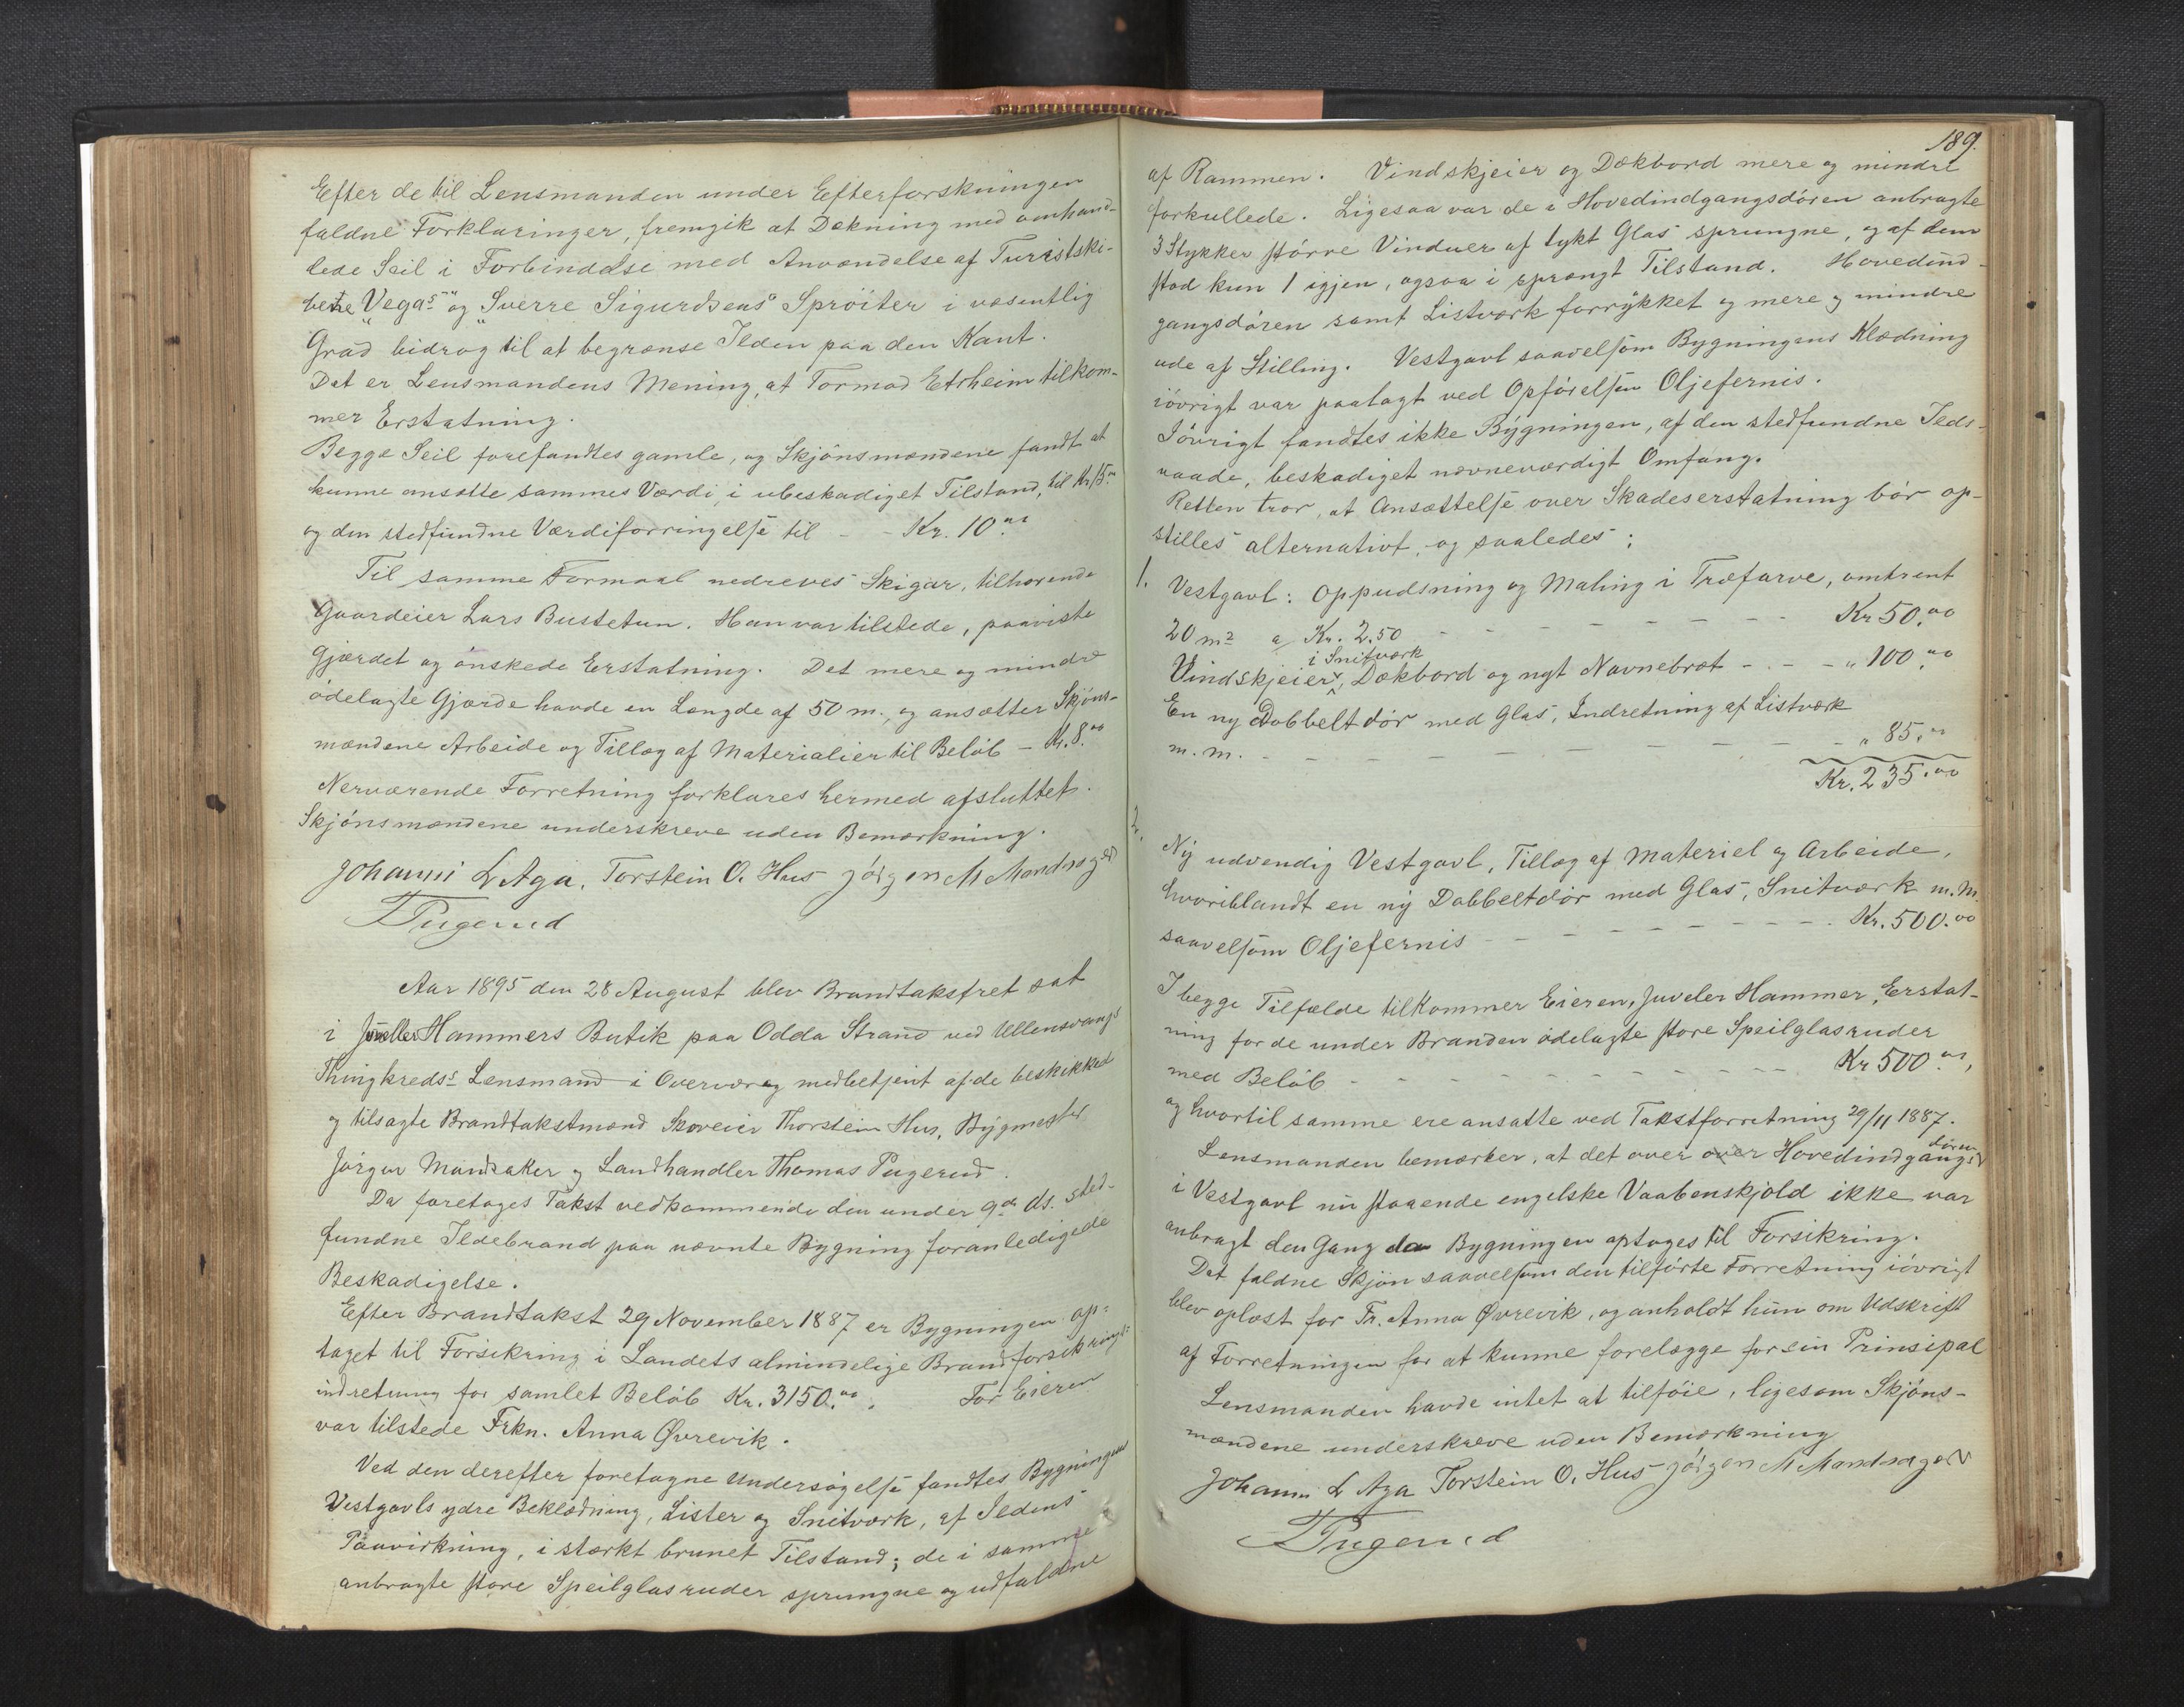 Efter de til Lensmanden under Efterforskningen
faldne Forklaringer, fremgik at Dækning med omhand-
lede Seil i Forbindelse med Anvendelse af Turistski-
bene "Vegas" og "Sverre Sigurdsens" Sprøiter i væsentlig
Grad bidrog til at begrænse Ilden paa den Kant.
Det er Lensmandens Mening, at Tormod Eitrheim tilkom-
mer Erstatning.
Begge Seil forefandtes gamle, og Skjønsmændene fandt at
kunne ansætte sammes Værdi, i ubeskadiget Tilstand, til Kr. 15.00
og den stedfundne Værdiforringelse til - - Kr. 10.00
Til samme Formaal nedreves Skigar, tilhørende
Gaardeier Lars Bustetun. Han var tilstede, paaviste
Gjærdet og ønskede Erstatning. Det mere og mindre
ødelagte Gjærde havde en Længde af 50 m., og ansætter Skjøns-
mændene Arbeide og Tillæg af Materialier til Beløb - Kr. 8.00
Nærværende Forretning forklares hermed afsluttet.
Skjønsmændene underskreve uden Bemærkning.
Johannis L Aga, Torstein O. Hus Jørgen M Mandsager
T Pugerud
Aar 1895 den 28 August blev Brandtakstret sat
i Juveller Hammers Butik paa Odda Strand ved Ullensvangs
Thingkreds's Lensmand i Overvær og medbetjent af de beskikkede
og tilsagte Brandtakstmænd Skoveier Thorstein Hus, Bygmester
Jørgen Mandsaker og Landhandler Thomas Pugerud.
Da foretoges Takst vedkommende den under 9de ds. sted-
fundne Ildebrand paa nævnte Bygning foranledigede
Beskadigelse.
Efter Brandtakst 29 November 1887 er Bygningen op-
taget til Forsikring i Landets almindelige Brandforsikrings-
indretning for samlet Beløb Kr. 3150.00. For Eieren
var tilstede Frkn. Anna Øvrevik.
Ved den derefter foretagne Undersøgelse fandtes Bygningens
Vestgavls ydre Beklædning, Lister og Snitværk, af Ildens
Paavirkning, i stærkt brunet Tilstand; de i samme
anbragte store Speilglasruder sprungne og udfaldne
189.
af Rammen. Vindskjeier og Dækbord mere og mindre
forkullede. Ligesaa var de i Hovedindgangsdøren anbragte
3 Stykker større Vinduer af tykt Glas sprungne, og af dem
stod kun 1 igjen, ogsaa i sprængt Tilstand. Hovedind-
gangsdøren samt Listværk forrykket og mere og mindre
ude af Stilling. Vestgavl saavelsom Bygningens Klædning
iøvrigt var paalagt ved Opførelsen Oljefernis.
Iøvrigt fandtes ikke Bygningen, af den stedfundne Ilds-
vaade, beskadiget nævneværdigt Omfang.
Retten tror, at Ansættelse over Skadeserstatning bør op-
stilles alternativt, og saaledes:
1. Vestgavl: Oppudsning og Maling i Træfarve, omtrent
20 m2 a Kr. 2.50 - - - - - - - - Kr 50.00
i Snitværk
Vindskjeier, Dækbord og nyt Navnebræt - - - " 100.00
En ny Dobbeltdør med Glas, Indretning af Listværk
m. m. - - - - - - - - - " 85.00
Kr. 235.00
2.
Ny udvendig Vestgavl, Tillæg af Materiel og Arbeide,
hvoriblandt en ny Dobbeltdør med Glas, Snitværk m. m.
saavelsom Oljefernis - - - - - - - - - Kr. 500.00
I begge Tilfælde tilkommer Eieren, Juveler Hammer, Erstat-
ning for de under Branden ødelagte store Speilglasruder
med Beløb - - - - - - - - - - Kr 500.00,
og hvortil samme ere ansatte ved Takstforretning 29/11 1887.
Lensmanden bemærker, at det over over Hovedindgangsdøren
i Vestgavl nu staaende engelske Vaabenskjold ikke var
anbragt den Gang da Bygningen optoges til Forsikring.
Det faldne Skjøn saavelsom den tilførte Forretning iøvrigt
blev oplæst for Fr. Anna Øvrevik, og anholdt hun om Udskrift
af Forretningen for at kunne forelægge for sin Prinsipal
Lensmanden havde intet at tilføie, ligesom Skjøns-
mændene underskreve uden Bemærkning
Johann L Aga Torstein O. Hus Jørgen M Mandsager
T Pugerud